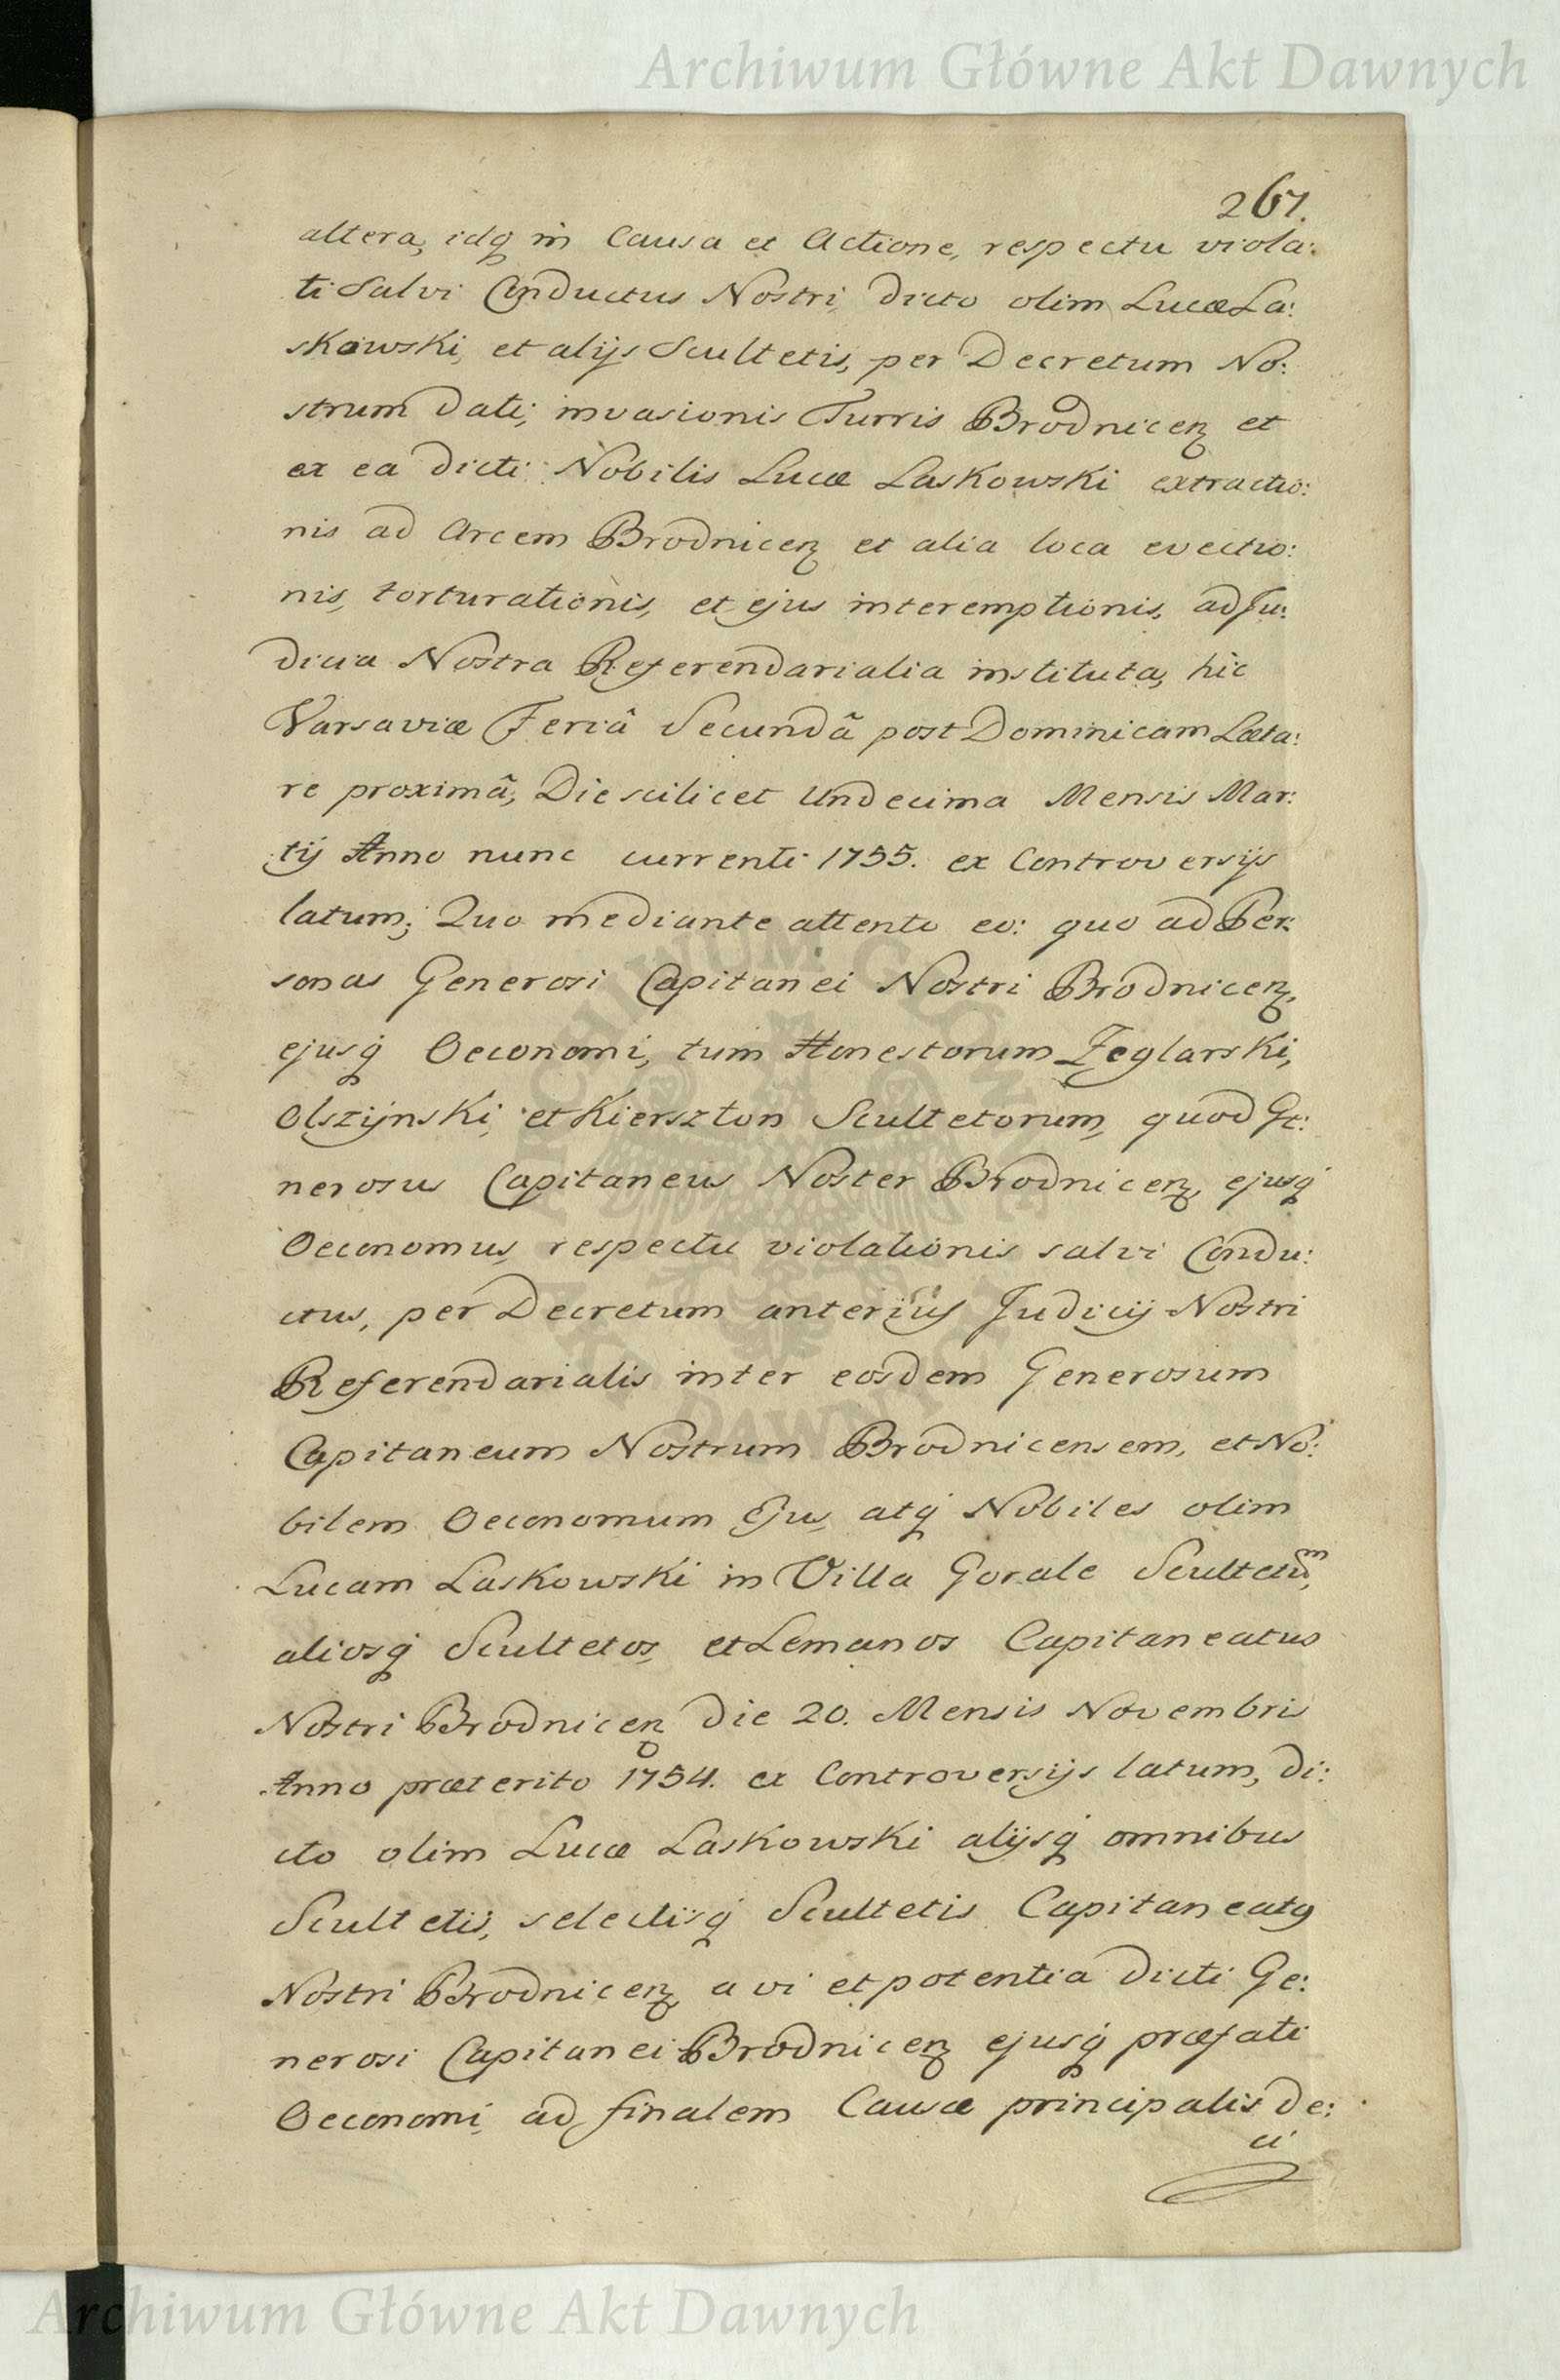 Archiwum Główne Akt Dawnych
267.
altera, idq in Causa et Actione, respectu viola:
ti Salvi Conductus Nostri, dicto olim Lucæ La:
skowski, et alijs Scultetis, per Decretum No:
strum dati, invasionis Turris Brodnicen et
ex ea dicti Nobilis Lucæ Laskowski extractio:
nis ad Arcem Brodnicen et alia loca evectio:
nis, torturationis, et ejus interemptionis, ad Ju:
dicia Nostra Referendarialia instituta, hic
Varsaviæ Feriâ Secundâ post Dominicam Læta:
re proximâ, Die scilicet Undecima Mensis Mar:
tij Anno nunc currenti 1755. ex Controversijs
latum; Quo mediante attento eo: quo ad Per:
sonas Generosi Capitanei Nostri Brodnicen,
ejusq Oeconomi, tum Honestorum Zeglarski,
Olszijnski, et Kierszton Scultetorum, quod Ge:
nerosus Capitaneus Noster Brodnicen, ejusq
Oeconomus, respectu violationis salvi Condu:
ctus, per Decretum anterius Judicij Nostri
Referendarialis inter eosdem Generosum
Capitaneum Nostrum Brodnicensem, et No:
bilem Oeconomum Ejus, atq Nobiles olim
Lucam Laskowski in Villa Gorale Scultetum,
aliosq Scultetos, et Lemanos Capitaneatus
Nostri Brodnicen die 20. Mensis Novembris
Anno præterito 1754. ex Controversijs latum, di:
cto olim Lucæ Laskowski alijsq omnibus
Scultetis, selectisq Scultetis Capitaneatus
Nostri Brodnicen, a vi et potentia dicti Ge:
nerosi Capitanei Brodnicen ejusq præfati
Oeconomi, ad finalem Causæ principalis De:
ci
Archiwum Główne Akt Dawnych